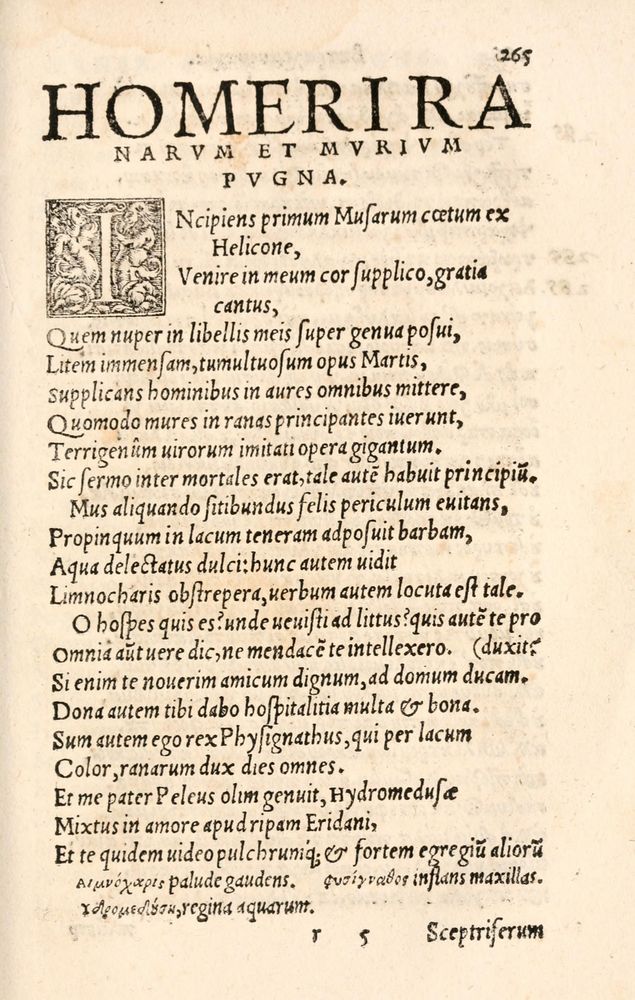 265
HOMERI RA
NARVM ET MVRIVM
PVGNA.
INcipiens primum Musarum cœtum ex
Helicone,
Venire in meum cor supplico, gratia
cantus,
Quem nuper in libellis meis super genua posui,
Litem immensam, tumultuosum opus Martis,
Supplicans hominibus in aures omnibus mittere,
Quomodo mures in ranas principantes iuerunt,
Terrigenûm uirorum imitati opera gigantum.
Sic sermo inter mortales erat, tale autē habuit principiū.
Mus aliquando sitibundus felis periculum euitans,
Propinquum in lacum teneram adposuit barbam,
Aqua delectatus dulci: hunc autem uidit
Limnocharis obstrepera, uerbum autem locuta est tale.
O hospes quis es? unde ueuisti ad littus? quis autē te pro
Omnia aūt uere dic, ne mendacē te intellexero. (duxit?
Si enim te nouerim amicum dignum, ad domum ducam.
Dona autem tibi dabo hospitalitia multa & bona.
Sum autem ego rex Physignathus, qui per lacum
Color, ranarum dux dies omnes.
Et me pater Peleus olim genuit, Hydromedusæ
Mixtus in amore apud ripam Eridani,
Et te quidem uideo pulchrumq; & fortem egregiū aliorū
λιμνόχαρις palude gaudens. φυσίγναθος inflans maxillas.
ὑδρομεδύση, regina aquarum.
r 5 Sceptriferum